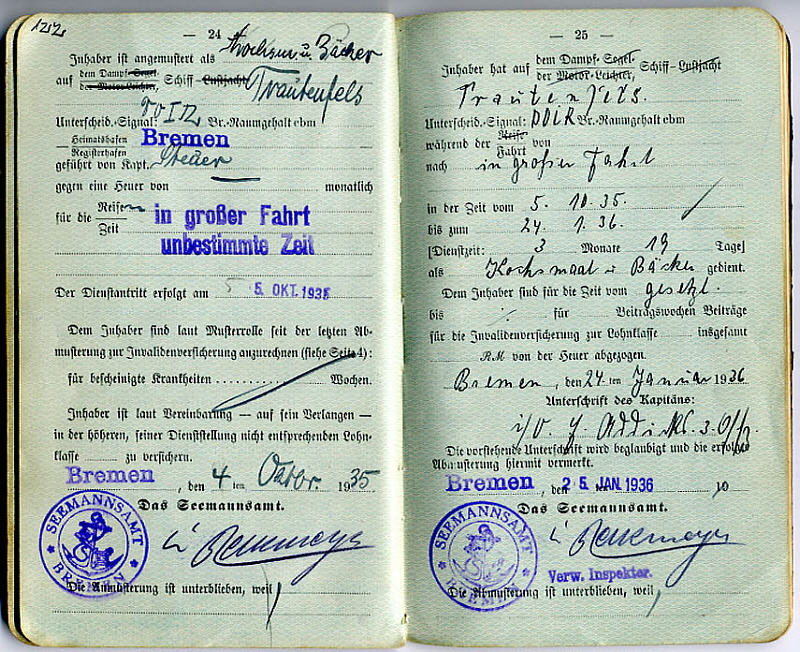 122
— 24
Inhaber ist angemustert als Kochsm. u. Bäcker
auf dem Dampf-Segel- Schiff Lustjacht Trautenfels
der Motor-Leichter,
Unterscheid.-Signal: Br.-Raumgehalt cbm
Heimatshafen Bremen
Registerhafen
geführt von Kapt. Steuer
gegen eine Heuer von monatlich
für die Reisen in großer Fahrt
Zeit unbestimmte Zeit
Der Dienstantritt erfolgt am 5. OKT. 1935
Dem Inhaber sind laut Musterrolle seit der letzten Ab-
musterung zur Invalidenversicherung anzurechnen (siehe Seite 4):
für bescheinigte Krankheiten .......... Wochen.
Inhaber ist laut Vereinbarung — auf sein Verlangen —
in der höheren, seiner Dienststellung nicht entsprechenden Lohn-
klasse zu versichern.
Bremen, den 4 ten Oktbr. 1935
Das Seemannsamt.
SEEMANNSAMT
BREMEN
Die Abmusterung ist unterblieben, weil
— 25 —
Inhaber hat auf dem Dampf-Segel- Schiff-Lustjacht
der Motor-Leichter,
Trautenfels.
Unterscheid.-Signal: DOIR Br.-Raumgehalt cbm
während der Reise von
Fahrt
nach in großer Fahrt
in der Zeit vom 5. 10. 35.
bis zum 24. 1. 36.
[Dienstzeit: 3 Monate 19 Tage]
als Kochsmaat u Bäcker gedient.
Dem Inhaber sind für die Zeit vom gesetzl.
bis für Beitragswochen Beiträge
für die Invalidenversicherung zur Lohnklasse insgesamt
RM von der Heuer abgezogen.
Bremen, den 24 ten Januar 1936
Unterschrift des Kapitäns:
i/V. 3. Offz.
Die vorstehende Unterschrift wird beglaubigt und die erfolgte
Abmusterung hiermit vermerkt.
Bremen, den 25. JAN. 1936 19
Das Seemannsamt.
SEEMANNSAMT
BREMEN
Verw. Inspektor.
Die Abmusterung ist unterblieben, weil